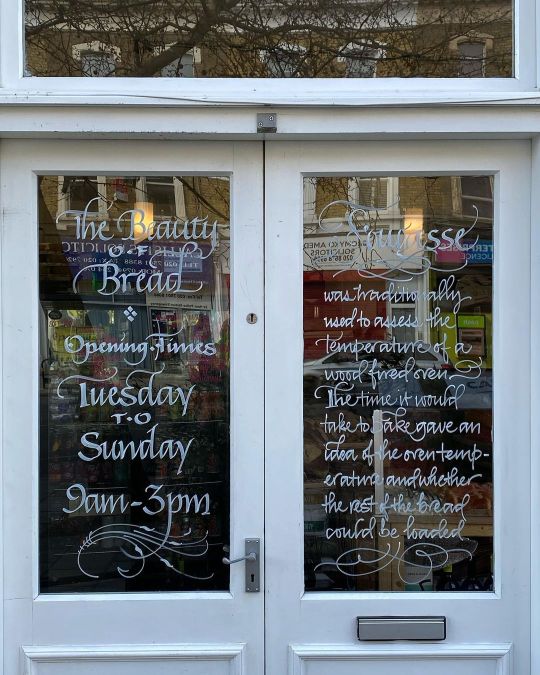 The Beauty
OF
Bread
Opening Times
Tuesday
TO
Sunday
9am-3pm
Fougasse
was traditionally
used to assess the
temperature of a
wood fired oven
The time it would
take to bake gave an
idea of the oven temp-
erature and whether
the rest of the bread
could be loaded
SOLICITORS